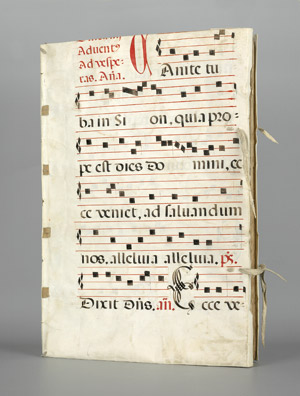 Adventꝰ
Ad vespe-
ras. Aña. Canite tu-
ba in Si on, quia pro-
pe est dies Do mini, ec
ce veniet, ad saluandum
nos, alleluia alleluia. ps.
Dixit Dñs. añ. Ecce ve-